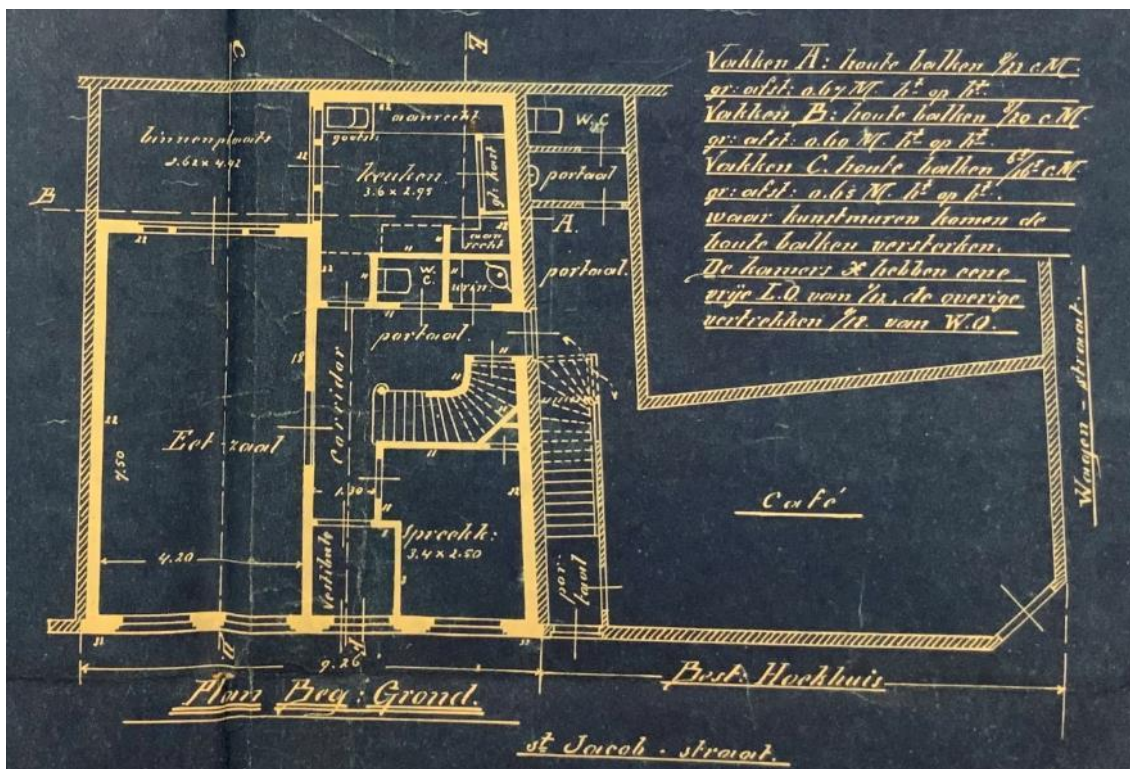 Vakken A: houte balken 8/23 c.M.
gr: afst: 0.67 M. ht op ht.
Vakken B: houte balken 8/20 c.M.
gr: afst: 0.60 M. ht op ht.
Vakken C. houte balken c.M.
gr: afst: 0.65 M. ht op ht.
waar kunstmuren komen de
houte balken versterken.
De kamers hebben eene
vrije L.O. van 1/12, de overige
vertrekken 1/18. van W.O.
C
E
binnenplaats
2.62 x 4.92
22
aanrecht
gootst:
22
keuken.
3.6 x 2.95
gl: kast
W.C
portaal
B
A.
aan
recht
22
W.
C.
urin:
portaal.
portaal.
22
18
22
Eet-zaal
7.50
4.20
corridor
1.30
Spreekk:
3.4 x 2.50
22
vestibule
por
taal
Café
Wagen-straat.
D
9.26
Best: Hoekhuis
Plan Beg: Grond.
st Jacob-straat.